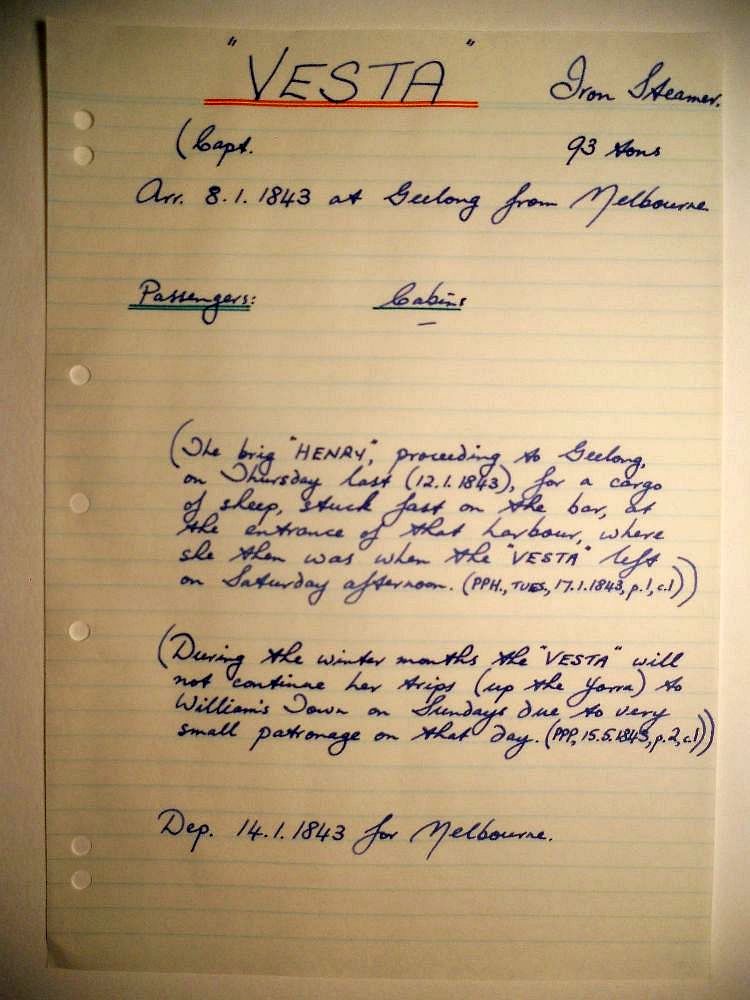 "VESTA" Iron Steamer.
(Capt. 93 tons
Arr. 8.1.1843 at Geelong from Melbourne
Passengers: Cabins
–
(The brig "HENRY", proceeding to Geelong,
on Thursday last (12.1.1843), for a cargo
of sheep, stuck fast on the bar, at
the entrance of that harbour, where
she then was when the "VESTA" left
on Saturday afternoon. (PPH., TUES., 17.1.1843, p.1, c.1))
(During the winter months the "VESTA" will
not continue her trips (up the Yarra) to
William's Town on Sundays due to very
small patronage on that day. (PPP, 15.5.1843, p.2, c.1))
Dep. 14.1.1843 for Melbourne.